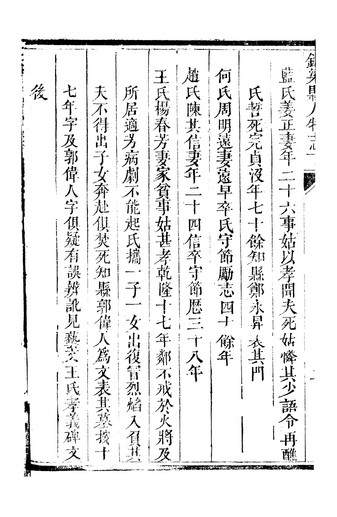 藍氏姜正妻年二十六事姑以孝聞夫死姑憐其少語令再醮
氏誓死完貞沒年七十餘知縣鄭永昇表其門
何氏周明遠妻遠早卒氏守節勵志四十餘年
趙氏陳其信妻年二十四信卒守節歷三十八年
王氏楊春芳妻家貧事姑甚孝乾隆十七年鄰不戒於火將及
所居適芳病劇不能起氏攜一子一女出復冒烈焰入負其
夫不得出子女奔赴俱焚死知縣郭偉人為文表其墓按十
七年字及郭偉人字俱疑有誤辨訛見藝文王氏孝義碑文
後
縣人物志